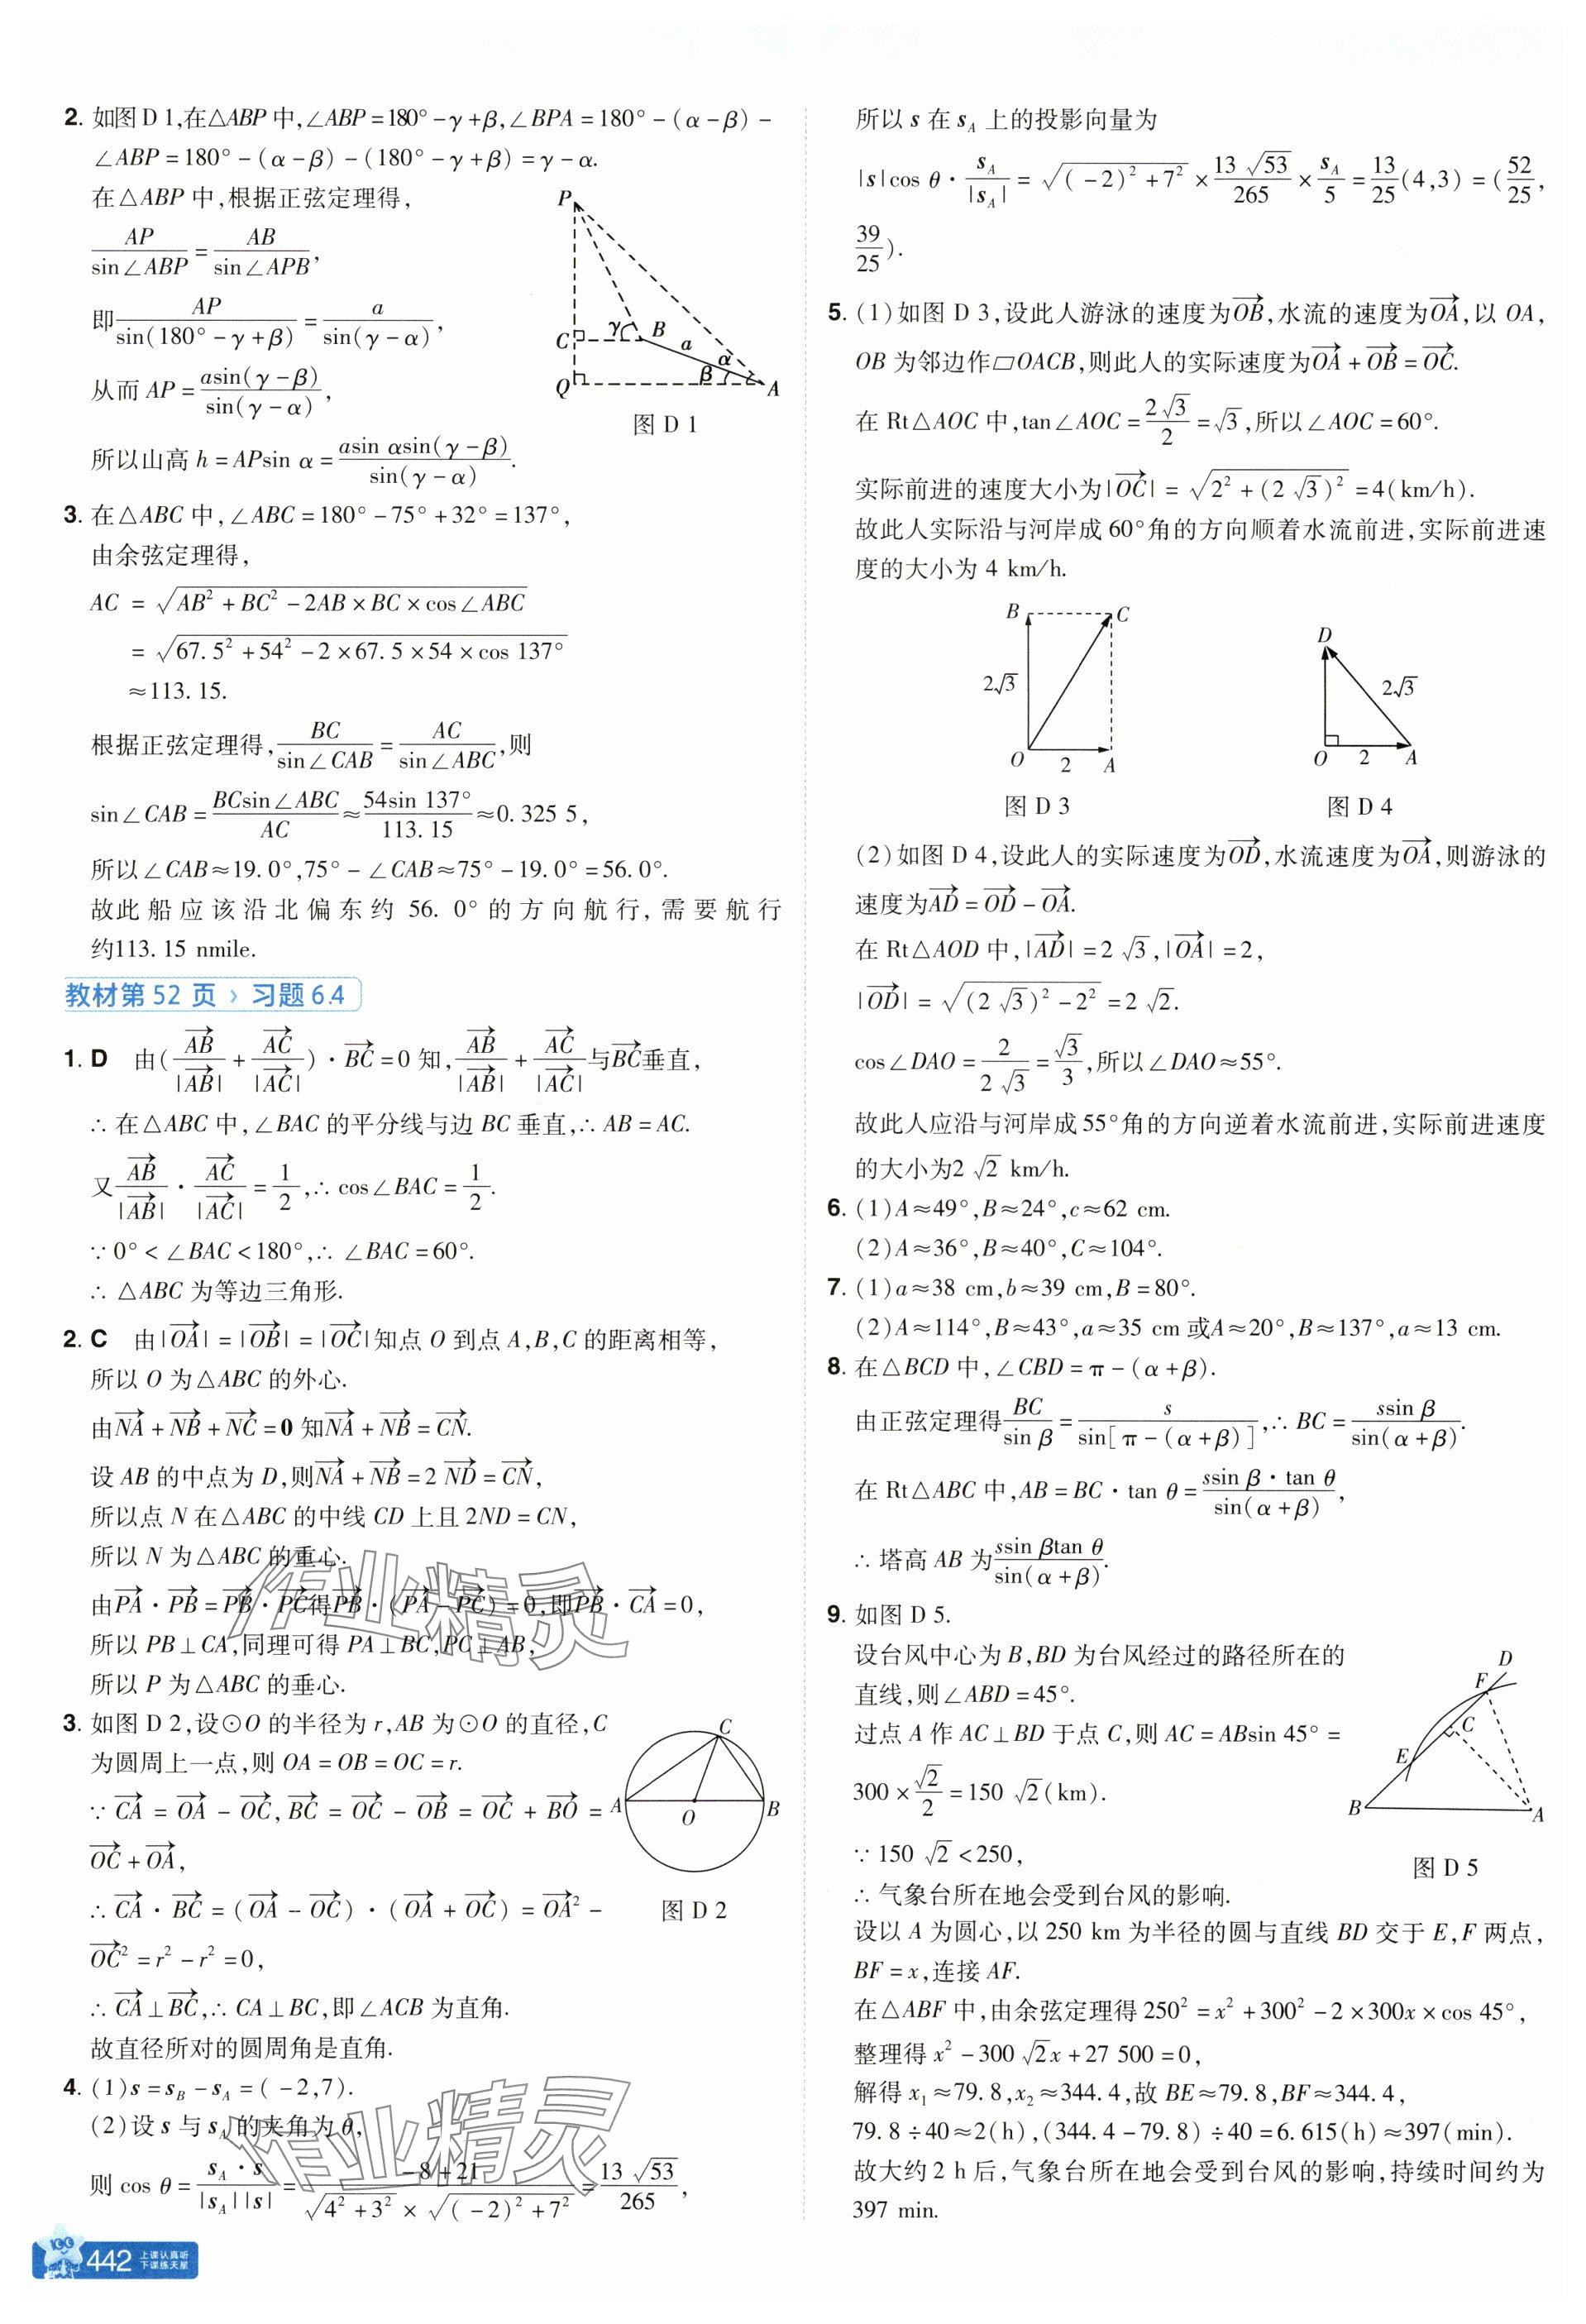 2. 如图 D 1,在△ABP 中,∠ABP=180°-γ+β,∠BPA=180°-(α-β)-
∠ABP=180°-(α-β)-(180°-γ+β)=γ-α.
在△ABP 中,根据正弦定理得,
AP/sin∠ABP=AB/sin∠APB,
即AP/sin(180°-γ+β)=a/sin(γ-α),
从而 AP=asin(γ-β)/sin(γ-α),
所以山高 h=APsin α=asin αsin(γ-β)/sin(γ-α).
P
C γ B
a α
β
Q A
图 D 1
3. 在△ABC 中,∠ABC=180°-75°+32°=137°,
由余弦定理得,
AC =√(AB²+BC²-2AB×BC×cos∠ABC)
=√(67.5²+54²-2×67.5×54×cos 137°)
≈113.15.
根据正弦定理得,BC/sin∠CAB=AC/sin∠ABC,则
sin∠CAB=BCsin∠ABC/AC≈54sin 137°/113.15≈0.325 5,
所以∠CAB≈19.0°,75°-∠CAB≈75°-19.0°=56.0°.
故此船应该沿北偏东约 56.0°的方向航行,需要航行
约113.15 nmile.
教材第 52 页 › 习题 6.4
1. D 由(AB→/|AB→|+AC→/|AC→|)·BC→=0 知,AB→/|AB→|+AC→/|AC→|与BC→垂直,
∴ 在△ABC 中,∠BAC 的平分线与边 BC 垂直,∴ AB=AC.
又AB→/|AB→|·AC→/|AC→|=1/2,∴ cos∠BAC=1/2.
∵ 0°<∠BAC<180°,∴ ∠BAC=60°.
∴ △ABC 为等边三角形.
2. C 由|OA→|=|OB→|=|OC→|知点 O 到点 A,B,C 的距离相等,
所以 O 为△ABC 的外心.
由NA→+NB→+NC→=0 知NA→+NB→=CN→.
设 AB 的中点为 D,则NA→+NB→=2 ND→=CN→,
所以点 N 在△ABC 的中线 CD 上且 2ND=CN,
所以 N 为△ABC 的重心.
由PA→·PB→=PB→·PC→得PB→·(PA→-PC→)=0,即PB→·CA→=0,
所以 PB⊥CA,同理可得 PA⊥BC,PC⊥AB,
所以 P 为△ABC 的垂心.
作业精灵
3. 如图 D 2,设⊙O 的半径为 r,AB 为⊙O 的直径,C
为圆周上一点,则 OA=OB=OC=r.
∵ CA→=OA→-OC→,BC→=OC→-OB→=OC→+BO→=
OC→+OA→,
∴ CA→·BC→=(OA→-OC→)·(OA→+OC→)=OA→²-
OC→²=r²-r²=0,
∴ CA→⊥BC→,∴ CA⊥BC,即∠ACB 为直角.
故直径所对的圆周角是直角.
C
A O B
图 D 2
4. (1)s=s_B-s_A=(-2,7).
(2)设 s 与 s_A 的夹角为 θ,
则 cos θ=s_A·s/|s_A||s|=(-8+21)/(√(4²+3²)×√((-2)²+7²))=13√53/265,
作业精灵
442 上课认真听
下课练天星
所以 s 在 s_A 上的投影向量为
|s|cos θ·s_A/|s_A|=√((-2)²+7²)×13√53/265×s_A/5=13/25(4,3)=(52/25,
39/25).
5. (1)如图 D 3,设此人游泳的速度为OB→,水流的速度为OA→,以 OA,
OB 为邻边作▱OACB,则此人的实际速度为OA→+OB→=OC→.
在 Rt△AOC 中,tan∠AOC=2√3/2=√3,所以∠AOC=60°.
实际前进的速度大小为|OC→|=√(2²+(2√3)²)=4(km/h).
故此人实际沿与河岸成 60°角的方向顺着水流前进,实际前进速
度的大小为 4 km/h.
B C
2√3
O 2 A
图 D 3
D
2√3
O 2 A
图 D 4
(2)如图 D 4,设此人的实际速度为OD→,水流速度为OA→,则游泳的
速度为AD→=OD→-OA→.
在 Rt△AOD 中,|AD→|=2√3,|OA→|=2,
|OD→|=√((2√3)²-2²)=2√2.
cos∠DAO=2/2√3=√3/3,所以∠DAO≈55°.
故此人应沿与河岸成55°角的方向逆着水流前进,实际前进速度
的大小为2√2 km/h.
6. (1)A≈49°,B≈24°,c≈62 cm.
(2)A≈36°,B≈40°,C≈104°.
7. (1)a≈38 cm,b≈39 cm,B=80°.
(2)A≈114°,B≈43°,a≈35 cm 或A≈20°,B≈137°,a≈13 cm.
8. 在△BCD 中,∠CBD=π-(α+β).
由正弦定理得BC/sin β=s/sin[π-(α+β)],∴ BC=ssin β/sin(α+β).
在 Rt△ABC 中,AB=BC·tan θ=ssin β·tan θ/sin(α+β),
∴ 塔高 AB 为ssin βtan θ/sin(α+β).
9. 如图 D 5.
设台风中心为 B,BD 为台风经过的路径所在的
直线,则∠ABD=45°.
过点 A 作 AC⊥BD 于点 C,则 AC=ABsin 45°=
300×√2/2=150√2(km).
∵ 150√2<250,
∴ 气象台所在地会受到台风的影响.
D
F
C
E
B A
图 D 5
设以 A 为圆心,以 250 km 为半径的圆与直线 BD 交于 E,F 两点,
BF=x,连接 AF.
在△ABF 中,由余弦定理得 250²=x²+300²-2×300x×cos 45°,
整理得 x²-300√2x+27 500=0,
解得 x₁≈79.8,x₂≈344.4,故 BE≈79.8,BF≈344.4,
79.8÷40≈2(h),(344.4-79.8)÷40=6.615(h)≈397(min).
故大约 2 h 后,气象台所在地会受到台风的影响,持续时间约为
397 min.